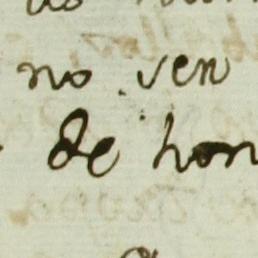 no ven
de hon